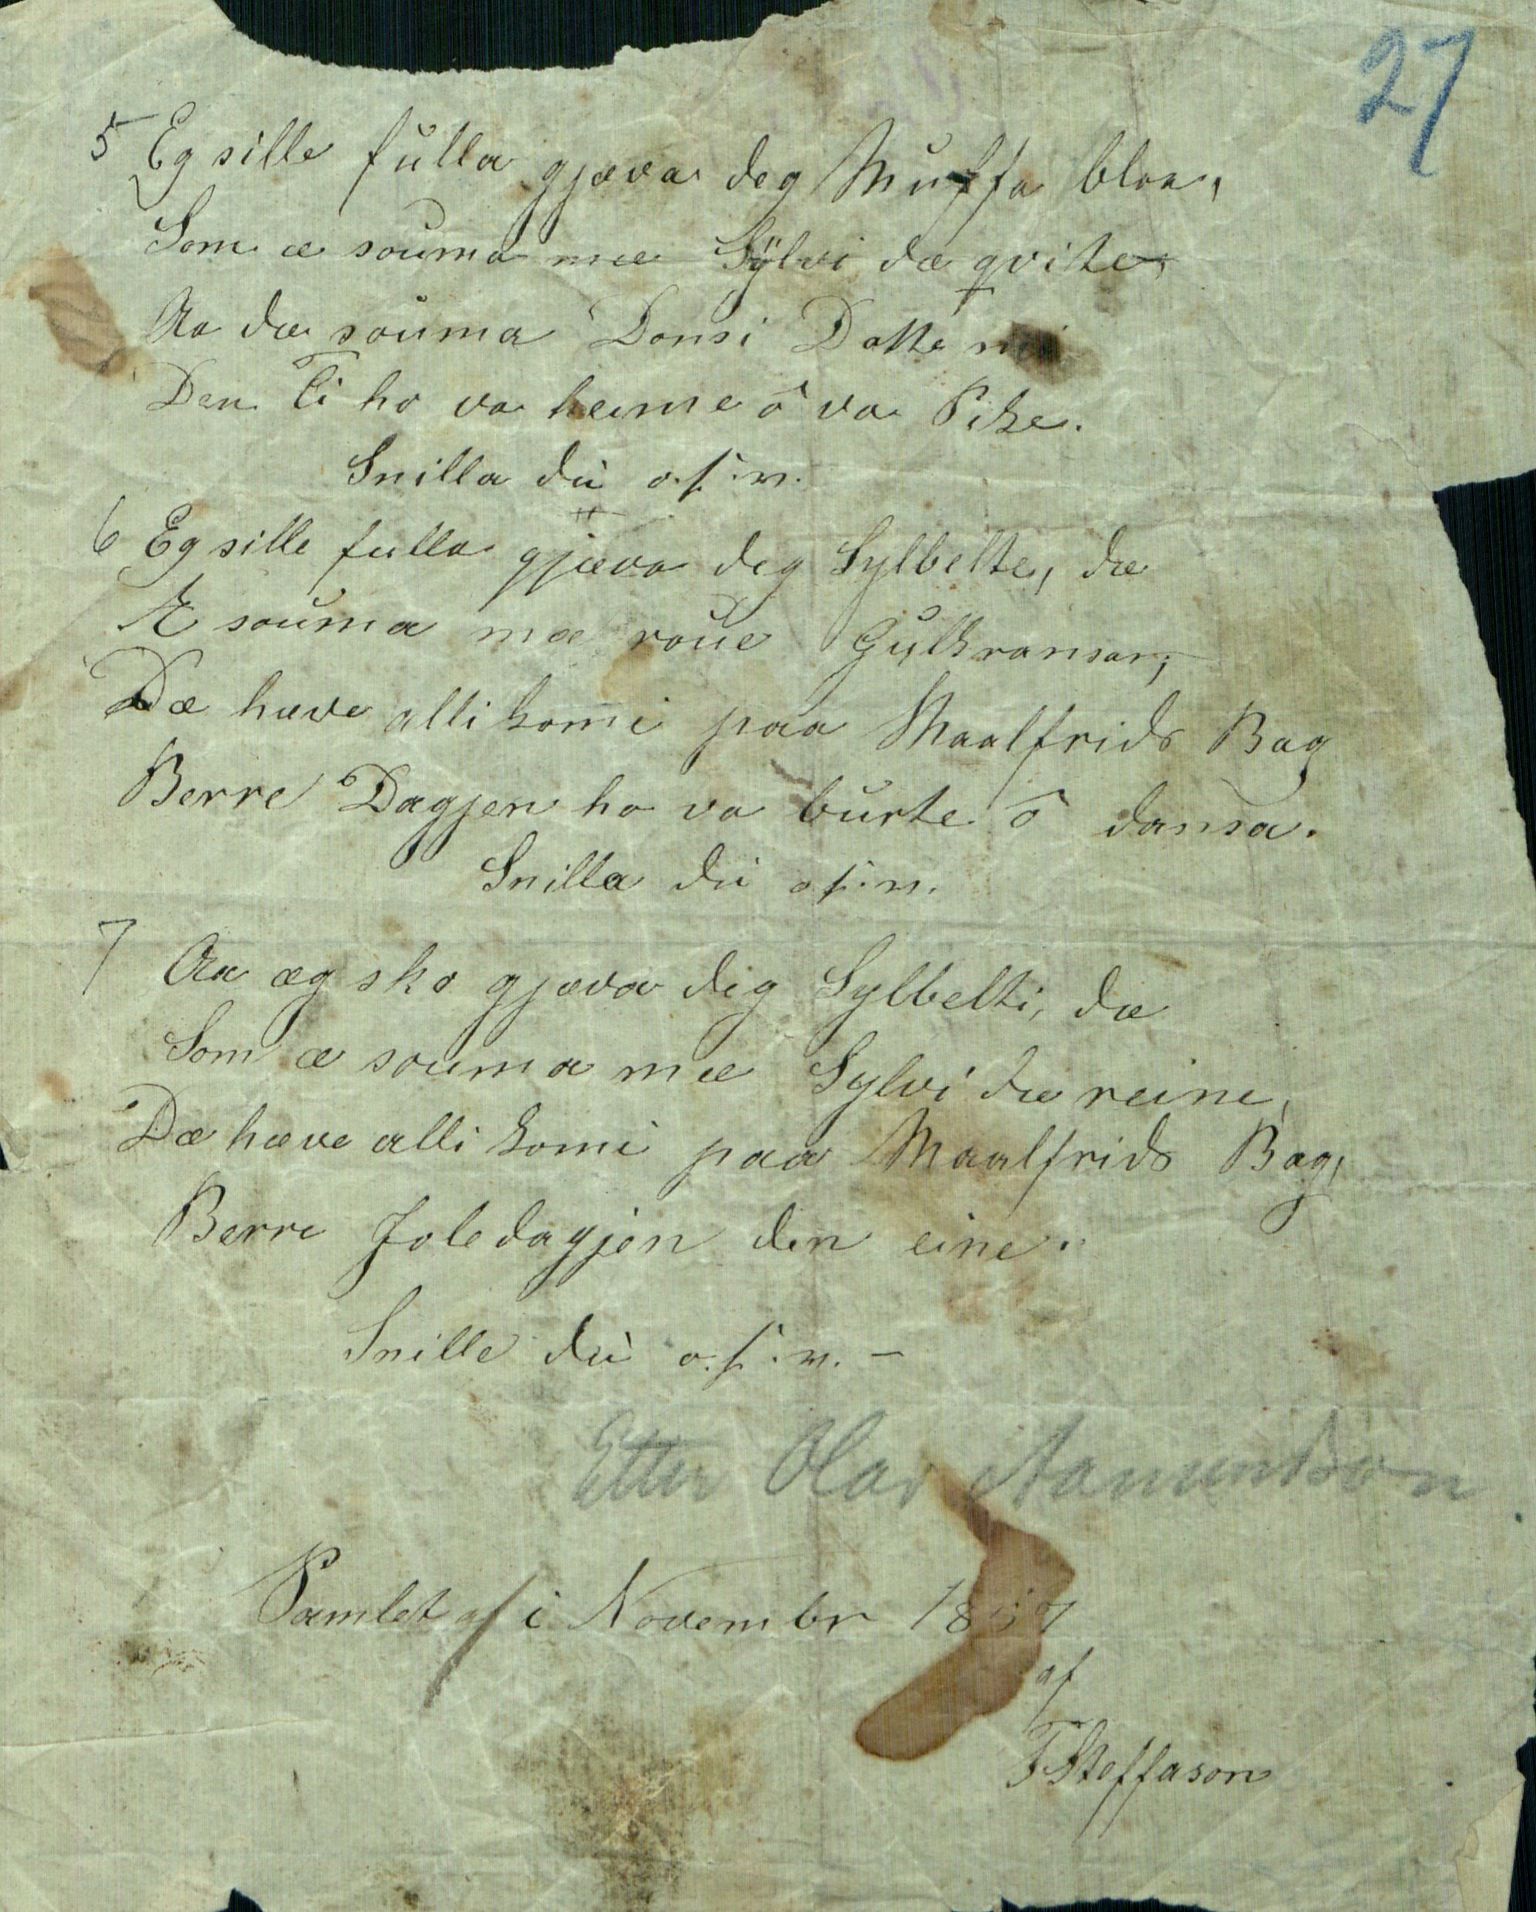 27
5 Eg sille fulla gjæva deg Muffa blaa,
Som æ souma mæ Sylvi dæ qvite,
Aa dæ souma Donsi Datte mi
Den Ti ho va heime ô va Pike.
Snilla du o.s.v.
6 Eg sille fulla gjæva deg Sylbelte, dæ
Æ souma mæ roue Gulkransar;
Dæ hæve alli komi paa Maalfrids Bag
Berre Dagjen ho va burte ô dansa.
Snilla du o.s.v.
7 Aa æg sko gjæva deg Sylbelti, dæ
Som æ souma mæ Sylvi dæ reine,
Dæ hæve alli komi paa Maalfrids Bag,
Berre Joledagjen den eine.
Snille du o.s.v. –
Etter Olav Aamundson
Samlet af i Novembr 1857
af
TSteffason